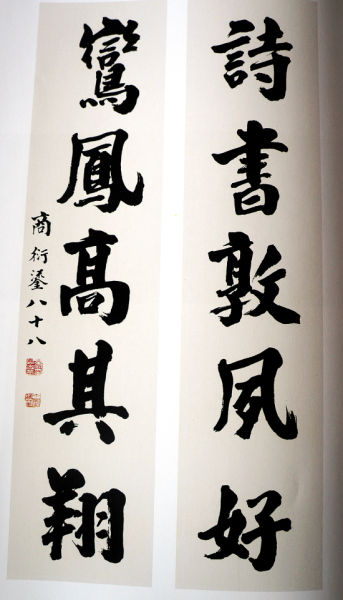 詩書敦夙好
鸞鳳高其翔
商衍鎏八十八